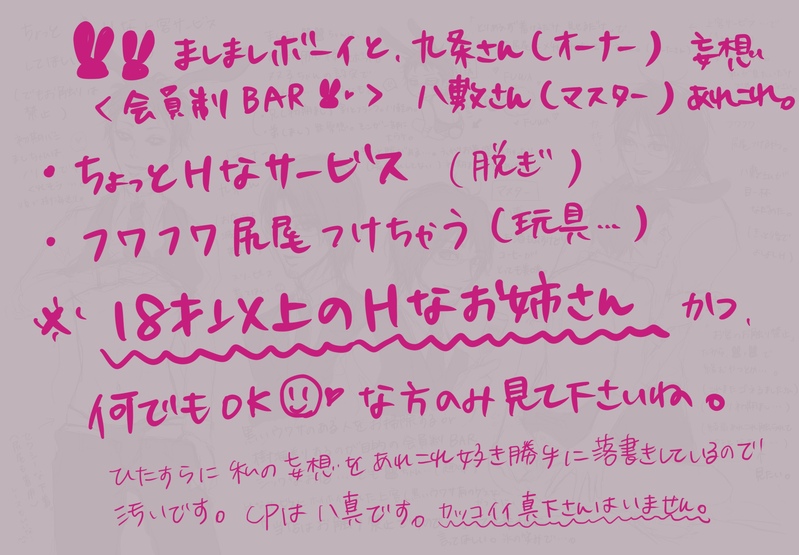 ましましボーイと、九条さん(オーナー) 妄想
<会員制BAR♥> 八敷さん(マスター) あれこれ。
・ちょっとHなサービス (脱ぎ)
・フワフワ尻尾つけちゃう (玩具…)
※18才以上のHなお姉さん かつ、
何でもOK♥な方のみ見て下さいね。
ひたすらに私の妄想をあれこれ好き勝手に落書きしているので
汚いです。CPは八真です。カッコイイ真下さんはいません。